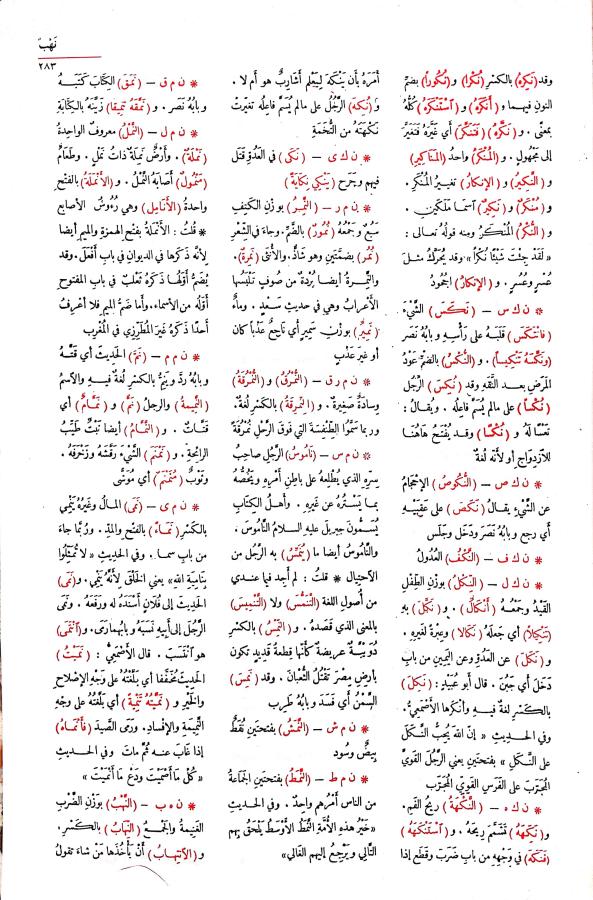 نَهْبٌ
٢٨٣
وقد (نَكِرَهُ) بالكسر (نُكْرا) و (نُكُوراً) بضم
النون فيهما و (أَنْكَرَهُ) و (اسْتَنْكَرَهُ) كلُّه
بمعنًى . و (نَكَّرَهُ) (فَتَنَكَّرَ) أي غَيَّرَه فتَغَيَّرَ
إلى مجهولٍ . و (المُنْكَرُ) واحدُ (المَنَاكِيرِ)
و (النَّكِيرُ) و (الإنكارُ) تغييرُ المُنْكَرِ .
و (مُنْكَرٌ) و (نَكِيرٌ) آسما مَلَكَين .
و (النُّكْرُ) المُنْكَرُ ومنه قولُه تعالى :
« لَقَدْ جِئْتَ شَيْئًا نُكْرًا » وقد يُحَرَّكُ مثلَ
عُسْرٍ وعُسُرٍ . و (الإنكارُ) الجُحُودُ
* ن ك س – (نَكَسَ) الشَّيْءَ
(فانتَكَسَ) قَلَبَهُ على رَأْسِهِ وبابُهُ نَصَر
(ونَكَّسَهُ تَنْكِيساً) . و (النُّكْسُ) بالضمِّ عَوْدُ
المَرَضِ بعد النَّقَهِ وقد (نُكِسَ) الرَّجُلُ
(نُكْساً) على مالم يُسَمَّ فاعِلُه . ويُقالُ :
تَعْسًا لَهُ و (نُكْسًا) وقد يُفْتَحُ هاهُنا
للآزدِواجِ أو لأنه لُغةٌ
* ن ك ص – (النُّكُوصُ) الإحْجامُ
عن الشَّيْءِ يقالُ (نَكَصَ) على عَقِبَيْهِ
أي رجع وبابُهُ نَصَر ودَخَل وجَلَس
* ن ك ف – (النَّكْفُ) العُدُولُ
* ن ك ل – (النِّكْلُ) بوزْنِ الطِّفْلِ
القَيْدُ وجَمْعُهُ (أَنْكالٌ) . و (نَكَّلَ) به
(تَنْكِيلاً) أي جَعَلَهُ (نَكالا) وعِبْرَةً لغيرِهِ .
و (نَكَلَ) عن العَدُوِّ وعن اليَمينِ من باب
دَخَل أي جَبُنَ . قال أبو عُبَيْدٍ : (نَكِلَ)
بالكَسْرِ لُغةٌ فيه وأنكَرَها الأَصْمَعِيُّ.
وفي الحديثِ « إنَّ اللهَ يُحِبُّ النَّكَلَ
على النَّكَلِ » بفتحتين يعني الرَّجُلَ القَوِيَّ
المُجَرِّبَ على الفَرَسِ القَوِيِّ المُجَرَّبِ
* ن ك ه – (النَّكْهَةُ) رِيحُ الفَمِ .
و (نَكِهَهُ) تَشَمَّمَ رِيحَهُ . و (آسْتَنْكَهَهُ)
(فَنَكَهَ) في وَجْهِهِ من باب ضَرَبَ وقَطَع إذا
أَمَرَهُ بأن يَنْكَهَ لِيَعْلَمَ أشَارِبٌ هو أم لا .
وَ (نُكِهَ) الرَّجُلُ على مالم يُسَمَّ فاعِلُه تغيرتْ
نَكْهَتُهُ من التُّخَمَةِ
* ن ك ى – (نَكَى) في العَدُوِّ قَتَل
فيهم وجَرَح (يَنْكِي نِكايةً)
* ن م ر – (النَّمِرُ) بوزْنِ الكَتِفِ
سَبُعٌ وجَمْعُهُ (نُمُورٌ) بالضَّمِّ. وجاء في الشِّعْرِ
(نُمُر) بضمَّتينِ وهو شاذٌّ. والأُنثَى (نَمِرةٌ).
والنَّمِرةُ أيضا بُرْدَةٌ من صُوفٍ تَلْبَسُها
الأَعْرابُ وهي في حديثِ سَعْدٍ . وماءٌ
(نَمِيرٌ) بوزن سَمِيرٍ أي ناجِعٌ عَذْبًا كان
أو غيرَ عَذْبٍ
* ن م ر ق – (النُّمْرُقُ) و (النُّمْرُقَةُ)
وِسادةٌ صغيرةٌ . و (النِّمْرِقَةُ) بالكَسْرِ لُغةٌ.
وربما سَمَّوُا الطِّنْفِسَةَ التي فوق الرَّحْلِ نُمْرُقَةً
* ن م س – (نامُوسُ) الرَّجُلِ صاحبُ
سِرِّه الذي يُطْلِعُهُ على باطِنِ أَمْرِهِ ويَخُصُّهُ
بما يَسْتُرُه عن غيرِهِ . وأهلُ الكِتابِ
يُسَمُّونَ جِبريلَ عليه السلامُ النَّامُوسَ .
والنَّامُوسُ أيضا ما (يُنَمِّسُ) به الرَّجُلُ من
الآحتيالِ * قلتُ : لم أجِد فيما عندي
من أُصولِ اللغةِ (التَنَمُّسَ) ولا (التَّنْمِيسَ)
بالمعنى الذي قَصَدَهُ . و (النِّمْسُ) بالكَسْرِ
دُوَيْبَّةٌ عريضةٌ كأنَّها قِطعةُ قَدِيدٍ تكون
بأرضِ مِصْرَ تَقْتُلُ الثُّعْبانَ . وقد (نَمِسَ)
السَّمْنُ أي فَسَد وبابُهُ طَرِب
* ن م ش – (النَّمَشُ) بفتحتين نُقَطٌ
بِيضٌ وسُود
* ن م ط – (النَّمَطُ) بفتحتين الجَماعةُ
من الناس أمْرُهم واحدٌ . وفي الحديثِ
« خَيْرُ هذه الأُمَّةِ النَّمَطُ الأَوْسَطُ يَلْحَقُ بِهِم
التالي ويَرْجِعُ إليهم الغالي »
* ن م ق – (نَمَقَ) الكِتابَ كَتَبَهُ
وبابُهُ نَصَر . و (نَمَّقَهُ تَنْمِيقا) زَيَّنَهُ بالكِتابةِ
* ن م ل – (النَّمْلُ) معروفٌ الواحدةُ
(نَمْلَةٌ) . وأرْضٌ نَمِلَةٌ ذاتُ نَمْلٍ . وطعامٌ
(مَنْمُولٌ) أصَابَهُ النَّمْلُ . و (الأَنْمَلَةُ) بالفَتْحِ
واحدةُ (الأَنامِلِ) وهي رُءُوسُ الأصابع
* قلتُ : الأَنْمَلَةُ بفتح الهمزةِ والميم أيضا
لأنَّه ذَكَرها في الديوان في باب أَفْعَل. وقد
يُضَمُّ أوَّلُها ذَكَرهُ ثَعْلَبٌ في باب المفتوحِ
أوَّلُه من الأسماء. وأما ضَمُّ الميم فلا أعْرِفُ
أحدًا ذَكَرهُ غيرَ المُطَرِّزي في المُغْرِب
* ن م م – (نَمَّ) الحَديثَ أي قَتَّهُ
وبابُهُ رَدَّ ويَنِمُّ بالكَسْرِ لُغةٌ فيهِ والآسمُ
(النَّمِيمةُ) والرجلُ (نَمٌّ) و (نَمَّامٌ) أي
قَتَّاتٌ . و (النَّمَّامُ) أيضا نَبْتٌ طَيِّبُ
الرائحةِ . و (نَمْنَمَ) الشَّيْءَ رَقَّشَهُ وزَخْرَفَهُ .
وثَوْبٌ (مُنَمْنَمٌ) أي مُوَشًّى
* ن م ى – (نَمَى) المالُ وغيرُهُ يَنْمِي
بالكَسْرِ (نَماءً) بالفَتْحِ والمَدِّ . ورُبَّما جاءَ
من بابِ سما . وفي الحديثِ « لا تُمَثِّلُوا
بِنَامِيَةِ الله » يعني الخَلْقَ لأنَّهُ يَنْمِي . و(نَمَى)
الحَدِيثَ إلى فُلانٍ أَسْنَدَهُ له ورَفَعَهُ . ونَمَى
الرَّجُلَ إلى أبِيهِ نَسَبَهُ وبابُهما رَمَى . و(آنْتَمَى)
هو آنْتَسَبَ . قال الأَصْمَعِيُّ : (نَمَيْتُ)
الحَدِيثَ مُخَفَّفا أي بلَّغْتُه على وَجْهِ الإصْلاحِ
والخَيْرِ و (نَمَّيْتُهُ تَنْمِيَةً) أي بَلَّغْتُه على وَجْهِ
النَّمِيمةِ والإفسادِ. ورَمَى الصَّيْدَ (فأَنْماهُ)
إذا غابَ عنه ثُمَّ ماتَ وفي الحديثِ
« كُلْ ما أَصْمَيْتَ ودَعْ ما أَنْمَيْتَ »
* ن ه ب – (النَّهْبُ) بوَزْنِ الضَّرْبِ
الغَنِيمةُ والجَمْعُ (النِّهابُ) بالكَسْرِ .
و (الآنتِهابُ) أنْ يأخُذَها مَنْ شاءَ تقُولُ